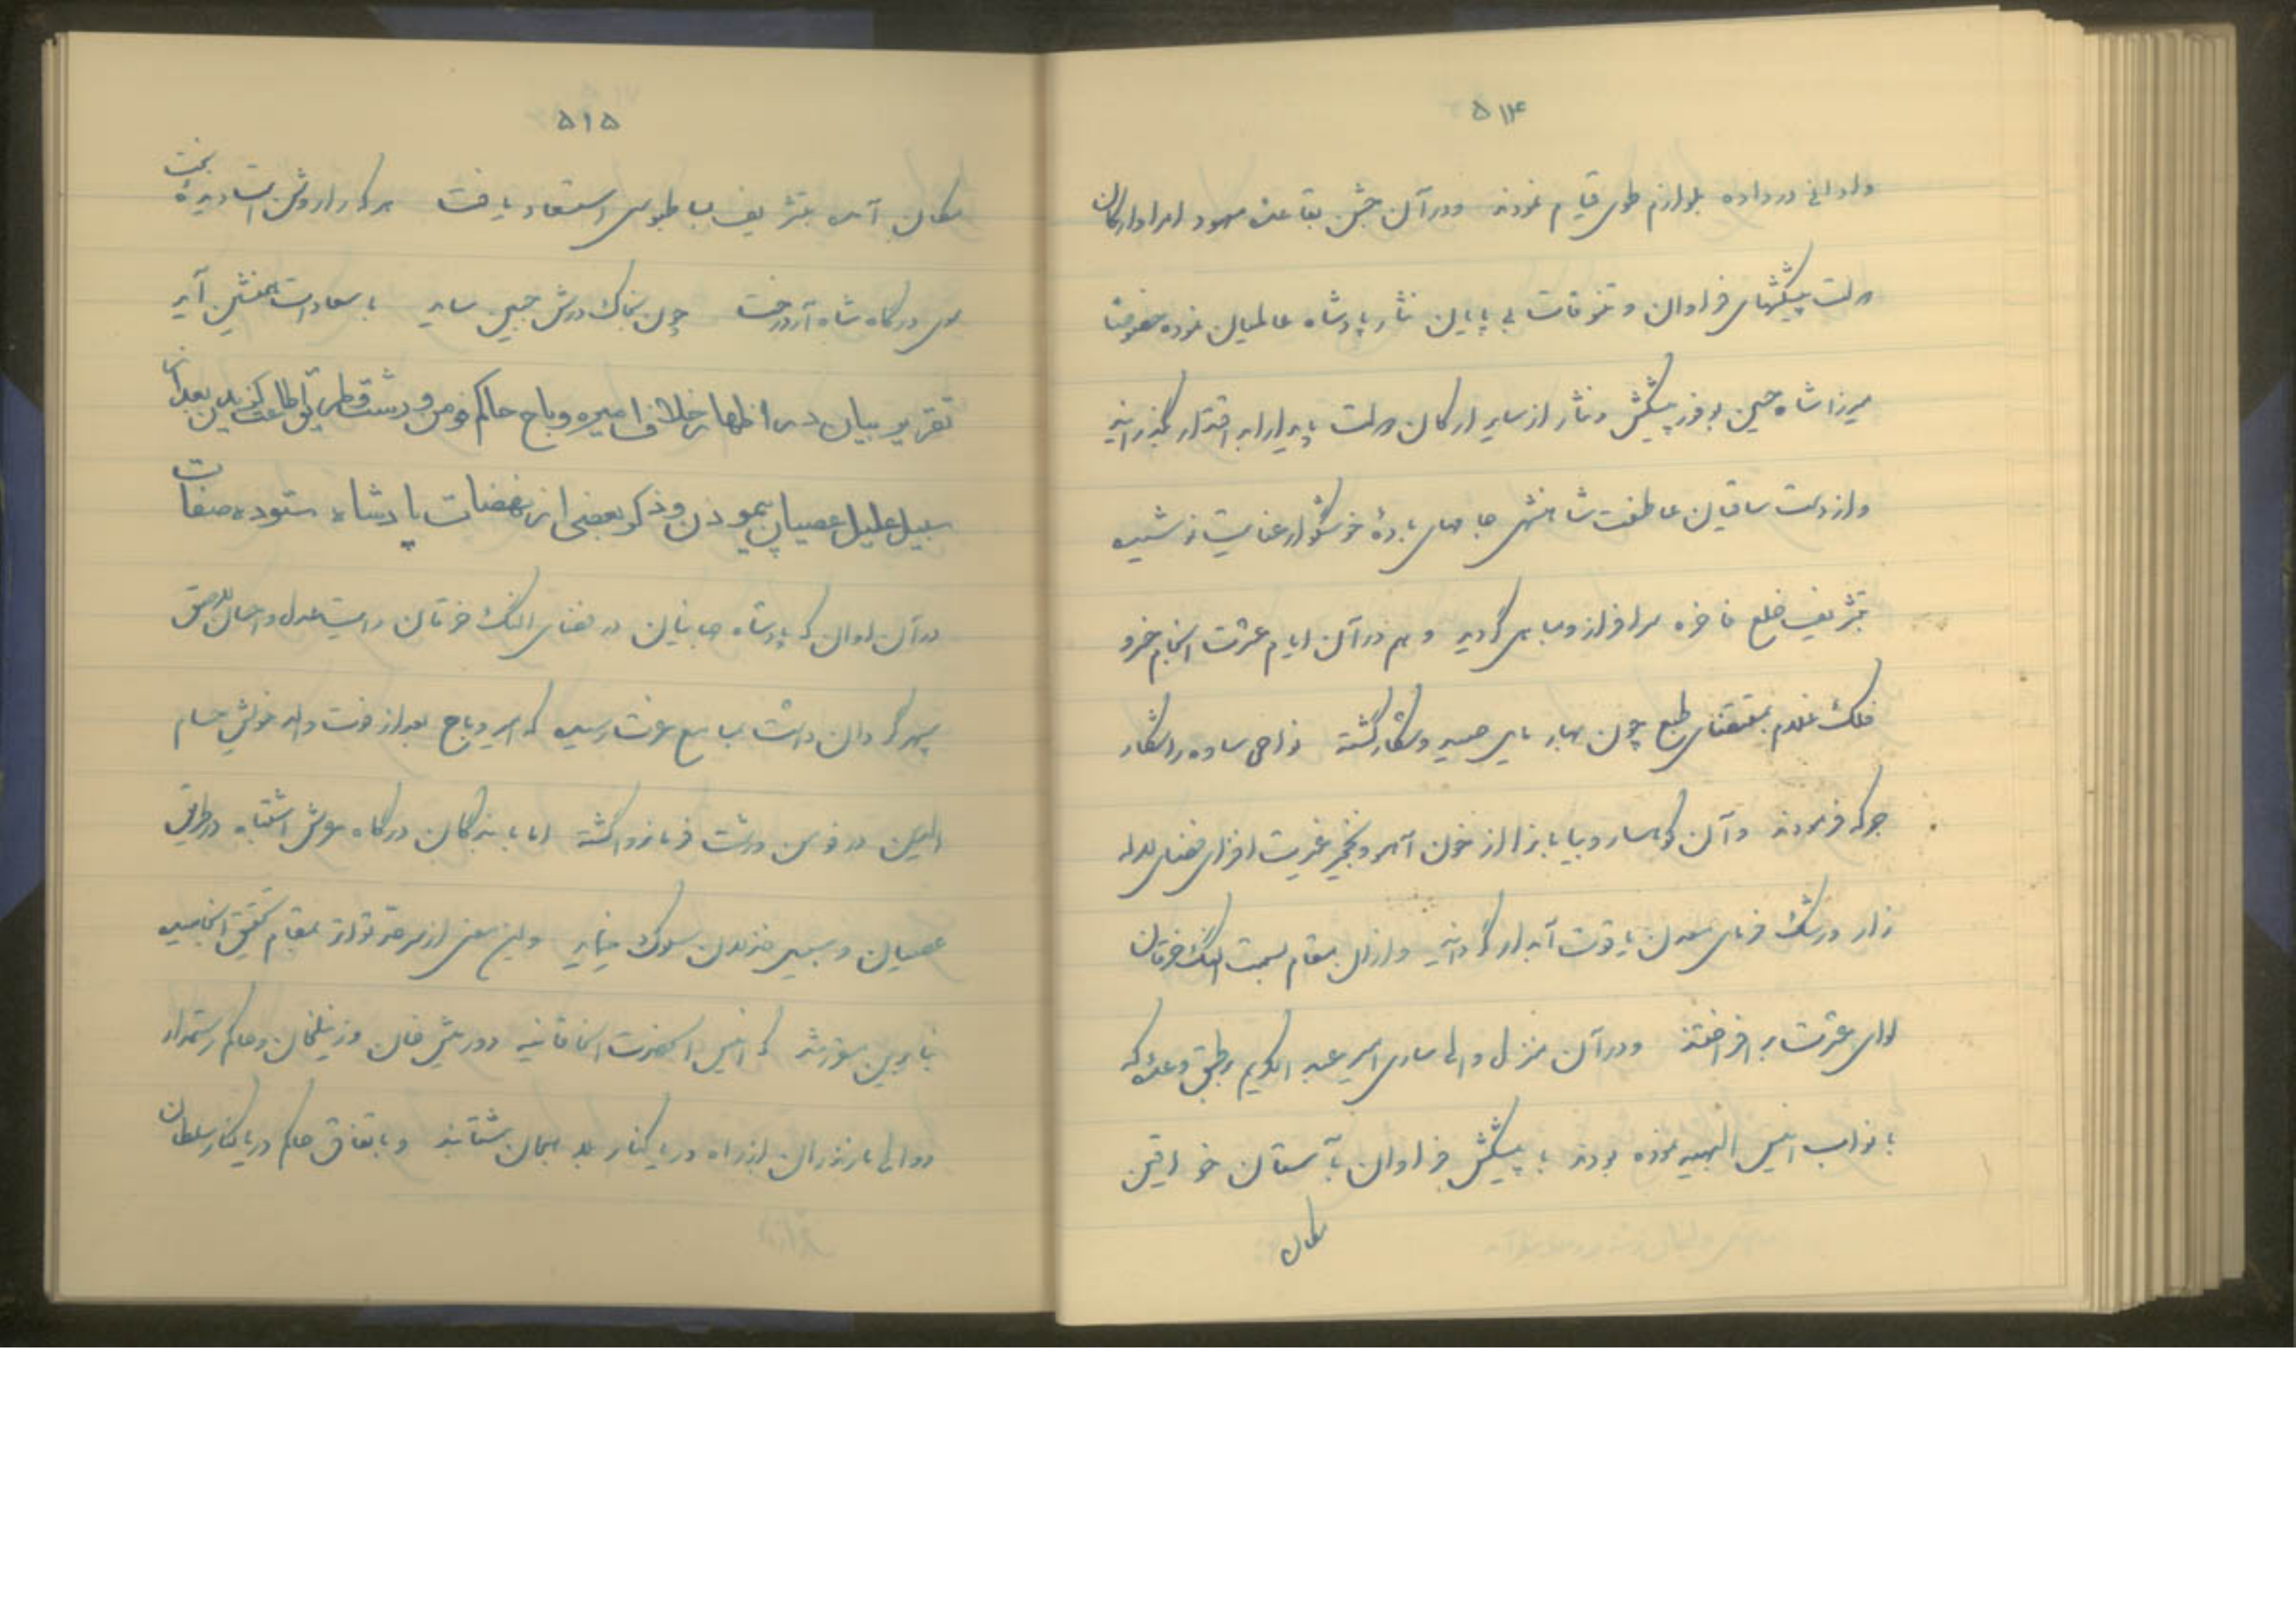 ۵۱۴
داد در داده بلوازم طوی قیام نمودند و در آن جشن بقاعده معهود امرا و ارکان
دولت پیشکشهای فراوان و تنوقات بی پایان نثار پادشاه عالمیان نموده خصوصا
میرزا شاه حسین پیشکش و نثار از سایر ارکان دولت پایدار اقتدار گذرانید
و از دست ساقیان عاطفت شاهنشهی جامهای باده خوشگوار عنایت نوشیده
بتشریف خلع فاخره سرافراز و مباهی گردید و هم در آن ایام عشرت انجام خسرو
فلک غلام بمقتضای طبع چون بهار مایل صید و شکار گشته نواحی ساوه را شکار
جرگه فرمودند و آن کوهسار و بیابانرا از خون آهو و نخجیر غیرت افزای فضای لاله
زار و رشک فرمای معدن یاقوت آبدار گردانید و از آن مقام بسمت النگ خرقان
لوای عشرت برافراختند و در آن منزل والی ساری امیر عبد الکریم بر طبق وعده که
با نواب انیس الحضرة نموده بودند با پیشکش فراوان بآستان خواقین
مکان
۵۱۵
مکان آمده بتشریف بساط بوسی استسعاد یافت هر کرا روشن است دیده بخت
سوی درگاه شاه آرد رخت چون بخاک درش جبین ساید با سعادت همنشین آید
تقریر بیان در اظهار خلاف امیره دباج حاکم فومن و رشت و طریق اطاعت گزیدن بعد از آن
سبیل علیل عصیان پیمودن و ذکر بعضی از نهضات پادشاه ستوده صفات
در آن اوان که پادشاه جهانیان در فضای النگ خرقان رایت عدل و احسان
سپهر گردان داشت بمسامع عزت رسید که امیره دباج بعد از فوت والد خویش حسام
الدین در فومن و رشت فرمانروا گشته اما با بندگان درگاه عرش اشتباه در طریق
عصیان و سبیل خذلان سلوک مینماید و این معنی از سرحد تواتر بمقام تحقیق انجامیده
بنا برین مقرر شد که انیس الحضرت الخاقانیه دورمیش خان و زینلخان و حاکم رستمدار
و والی مازندران از راه دریا کنار بدانجان شتابند و باتفاق حاکم دریا کنار سلطان